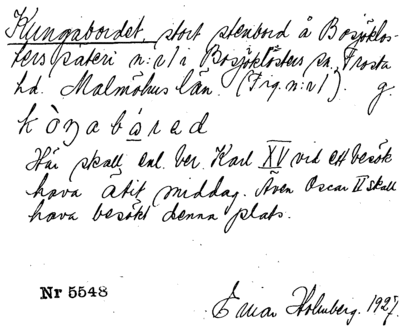 Kungabordet, stort stenbord å Bosjöklos-
ters säteri n:r 1 i Bosjöklosters sn, Frosta
hd. Malmöhus län. (Frg. n:r 1). g.
kòŋabórəd
Här skall enl. ber. Karl XV vid ett besök
hava ätit middag. Även Oscar II skall
hava besökt denna plats.
Nr 5548
Einar Holmberg. 1927.